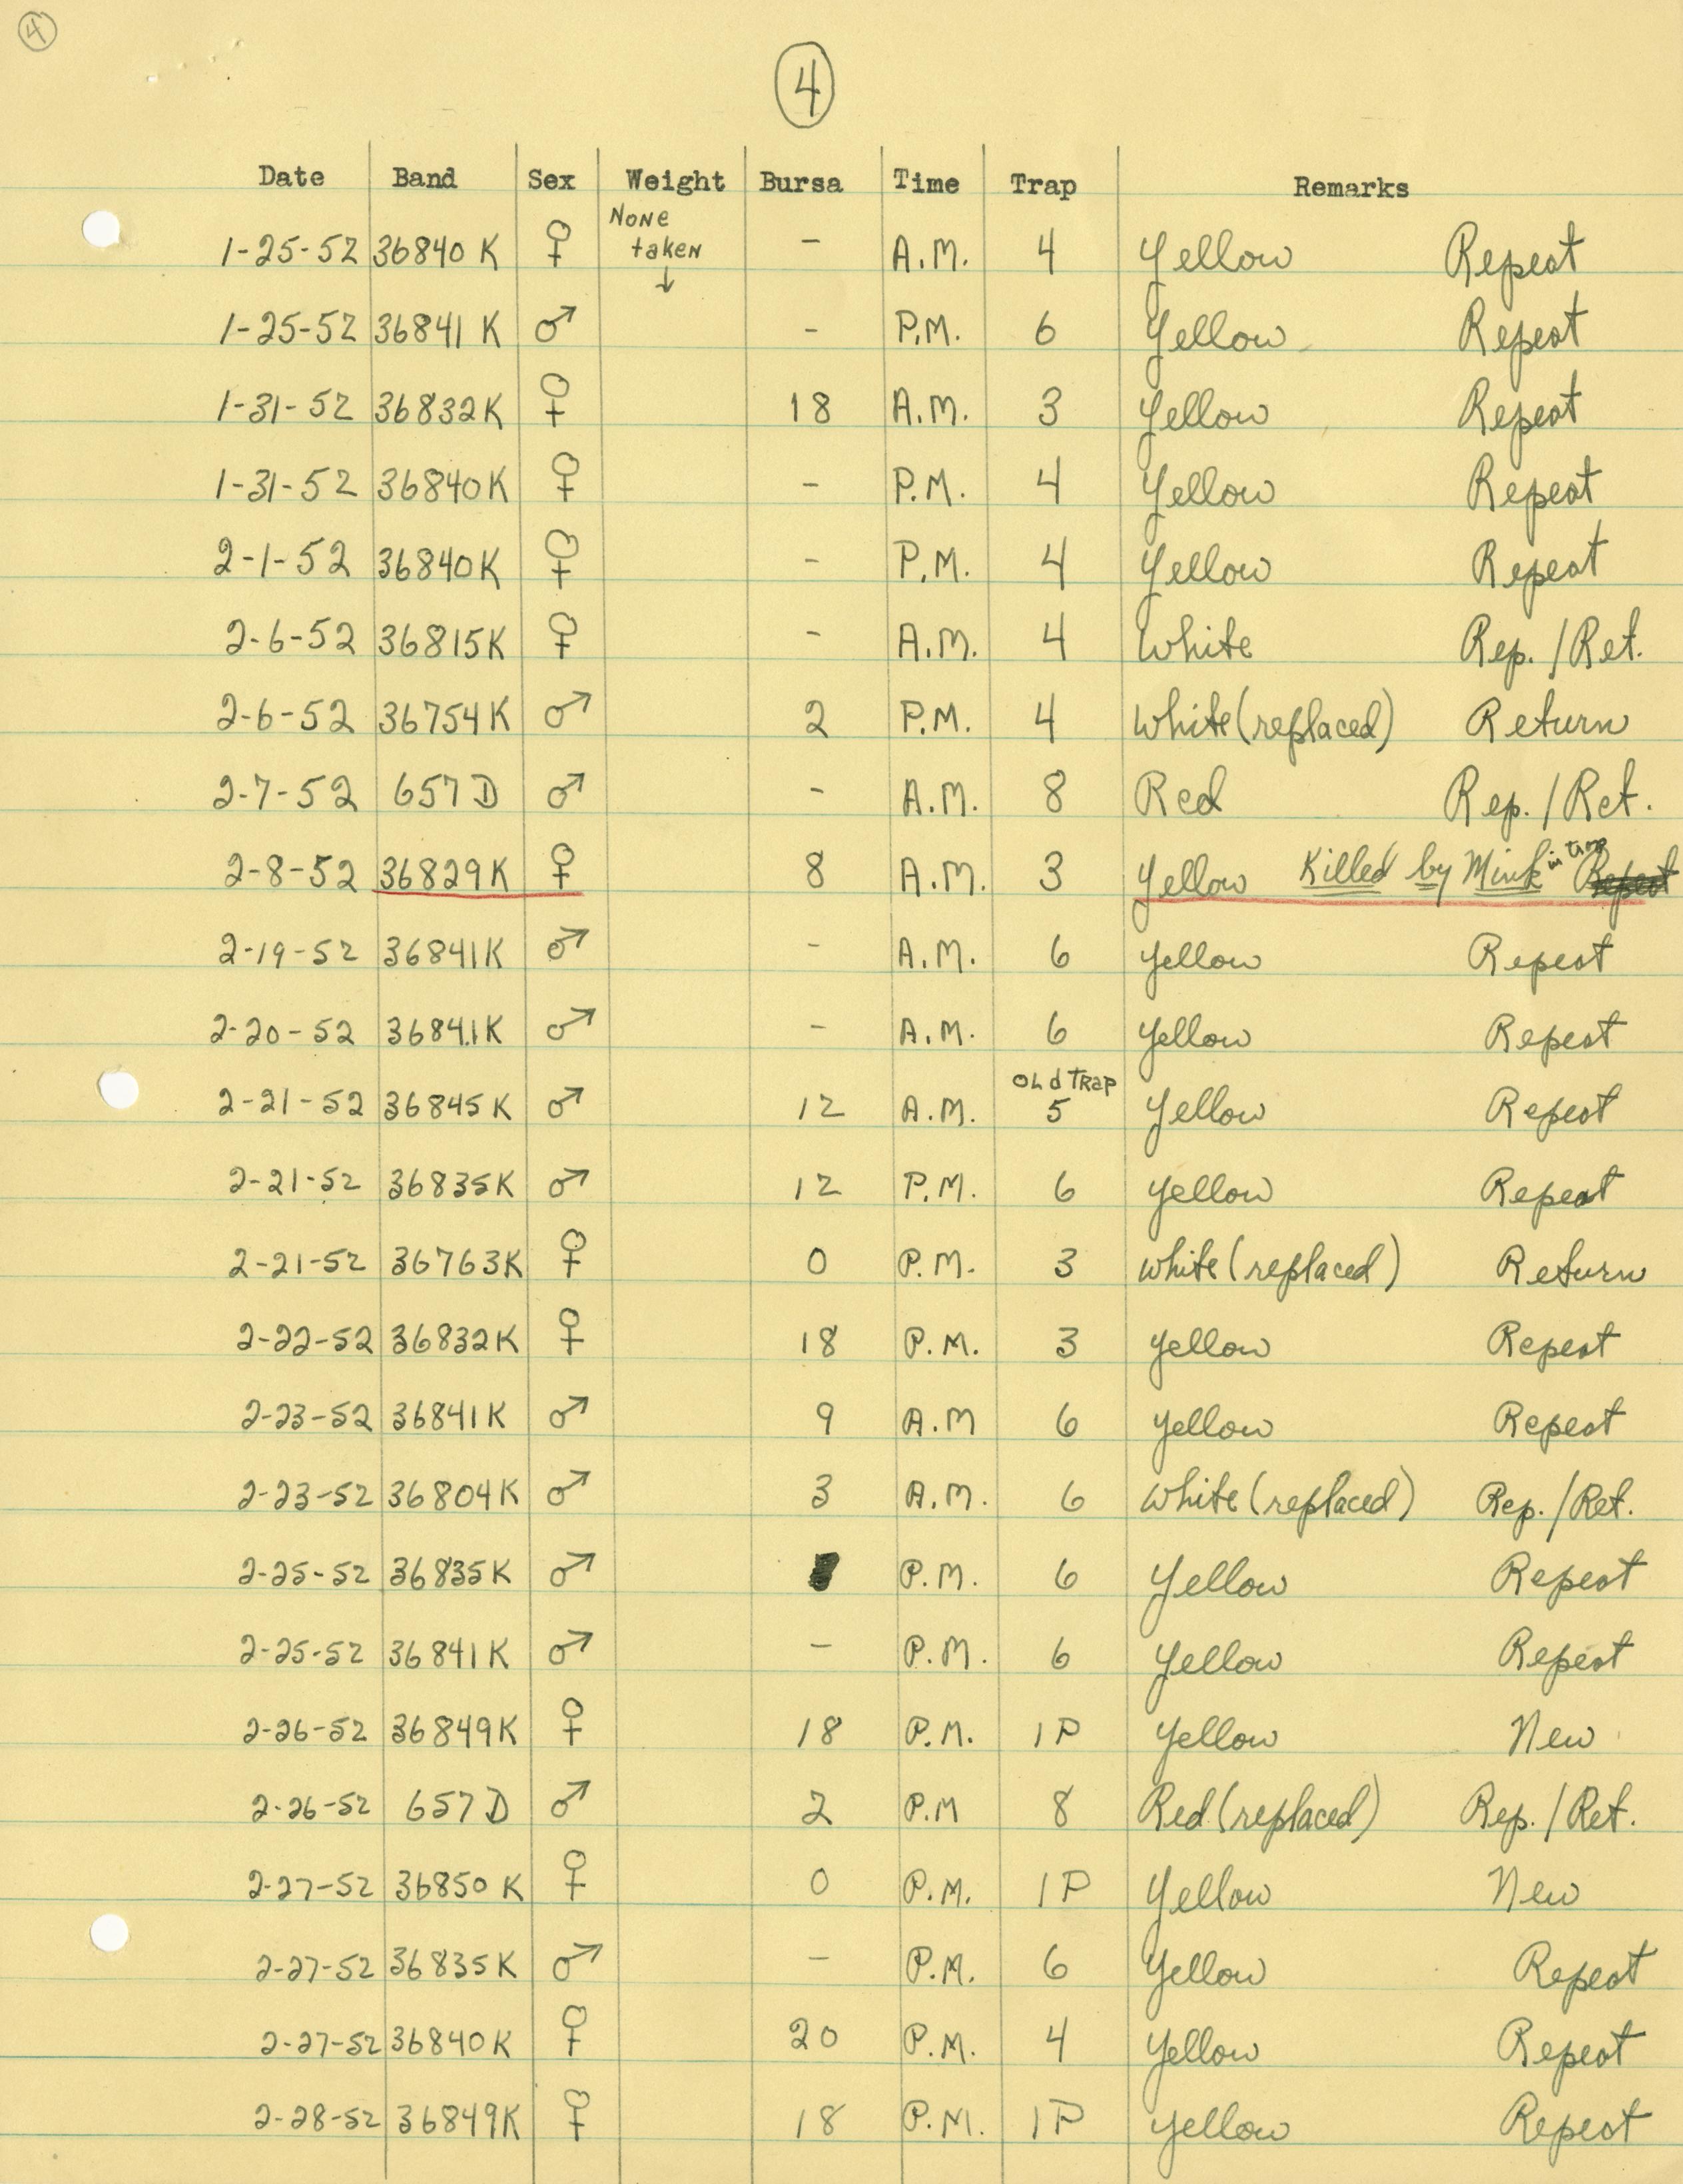 4
4
Date Band Sex Weight Bursa Time Trap Remarks
None taken ↓
1-25-52 36840 K ♀ - A.M. 4 Yellow Repeat
1-25-52 36841 K ♂ - P.M. 6 Yellow Repeat
1-31-52 36832K ♀ 18 A.M. 3 Yellow Repeat
1-31-52 36840K ♀ - P.M. 4 Yellow Repeat
2-1-52 36840K ♀ - P.M. 4 Yellow Repeat
2-6-52 36815K ♀ - A.M. 4 White Rep./Ret.
2-6-52 36754K ♂ 2 P.M. 4 White (replaced) Return
2-7-52 657 D ♂ - A.M. 8 Red Rep./Ret.
2-8-52 36829K ♀ 8 A.M. 3 Yellow Killed by Mink in trap Repeat
2-19-52 36841K ♂ - A.M. 6 Yellow Repeat
2-20-52 36841K ♂ - A.M. 6 Yellow Repeat
2-21-52 36845K ♂ 12 A.M. Old Trap 5 Yellow Repeat
2-21-52 36835K ♂ 12 P.M. 6 Yellow Repeat
2-21-52 36763K ♀ 0 P.M. 3 White (replaced) Return
2-22-52 36832K ♀ 18 P.M. 3 Yellow Repeat
2-23-52 36841K ♂ 9 A.M 6 Yellow Repeat
2-23-52 36804K ♂ 3 A.M. 6 White (replaced) Rep./Ret.
2-25-52 36835K ♂ P.M. 6 Yellow Repeat
2-25-52 36841K ♂ - P.M. 6 Yellow Repeat
2-26-52 36849K ♀ 18 P.M. 1P Yellow New
2-26-52 657 D ♂ 2 P.M 8 Red (replaced) Rep./Ret.
2-27-52 36850 K ♀ 0 P.M. 1P Yellow New
2-27-52 36835K ♂ - P.M. 6 Yellow Repeat
2-27-52 36840K ♀ 20 P.M. 4 Yellow Repeat
2-28-52 36849K ♀ 18 P.M. 1P Yellow Repeat